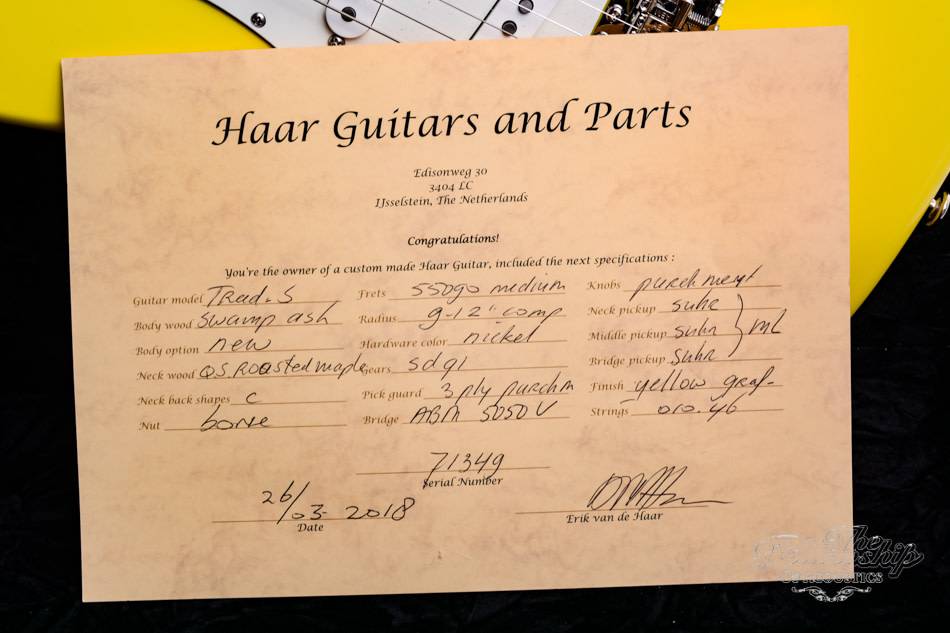 Haar Guitars and Parts
Edisonweg 30
3404 LC
IJsselstein, The Netherlands
Congratulations!
You're the owner of a custom made Haar Guitar, included the next specifications :
Guitar model Trad. S
Body wood Swamp ash
Body option new
Neck wood Q.S. Roasted maple
Neck back shapes C
Nut bone
Frets 55090 medium
Radius 9-12" comp
Hardware color nickel
Gears sd91
Pick guard 3 ply purchm
Bridge ABM 5050 V
Knobs purchment
Neck pickup suhr
Middle pickup suhr
Bridge pickup suhr
ML
Finish yellow graf-
Strings 010.46
71349
Serial Number
26/03-2018
Date
Erik van de Haar
The
Fellowship
of Acoustics